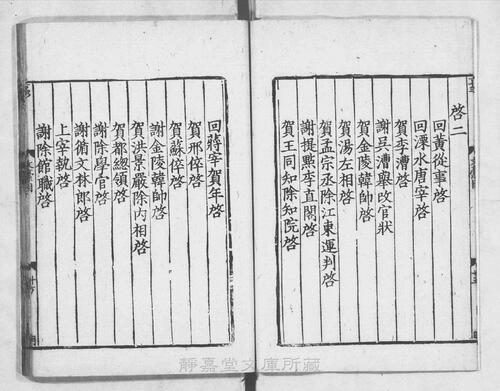 啓二
回黃從事啓
回溧水唐宰啓
賀李漕啓
謝吳漕舉改官狀
賀金陵韓帥啓
賀湯左相啓
賀孟宗丞除江東運判啓
謝提點李直閣啓
賀王同知除知院啓
回蔣宰賀年啓
賀邢倅啓
賀蘇倅啓
謝金陵韓帥啓
賀洪景嚴除内相啓
賀都總領啓
謝除學官啓
謝循文林郎啓
上宰執啓
謝除館職啓
靜嘉堂文庫所藏